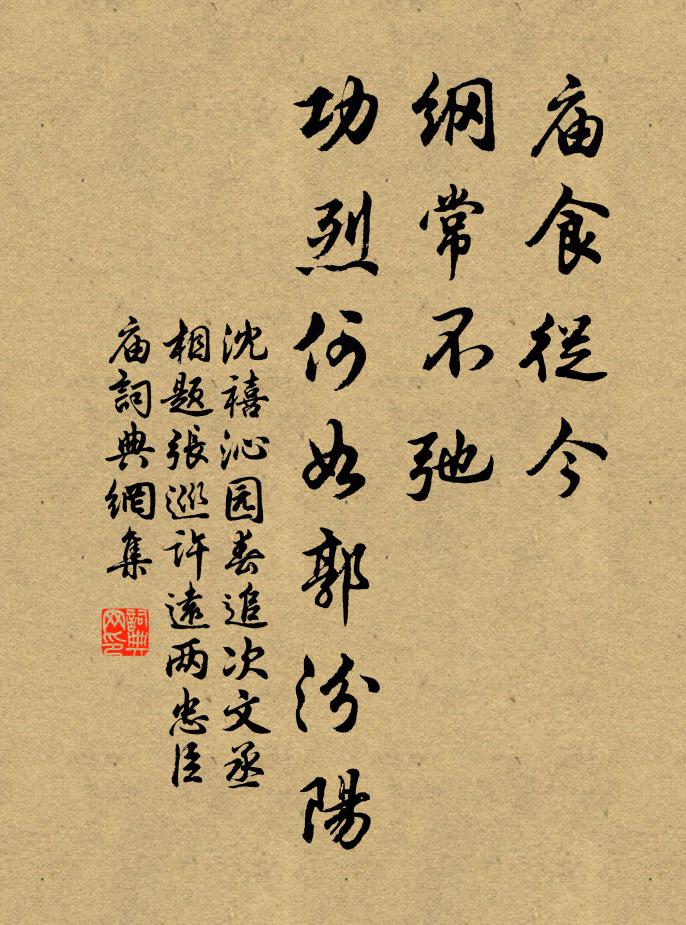 庙食從今
纲常不弛
功烈何如郭汾陽
沈禧沁园春追次文丞
相题張巡许遠两忠臣
庙詞典網集
詞典
网印